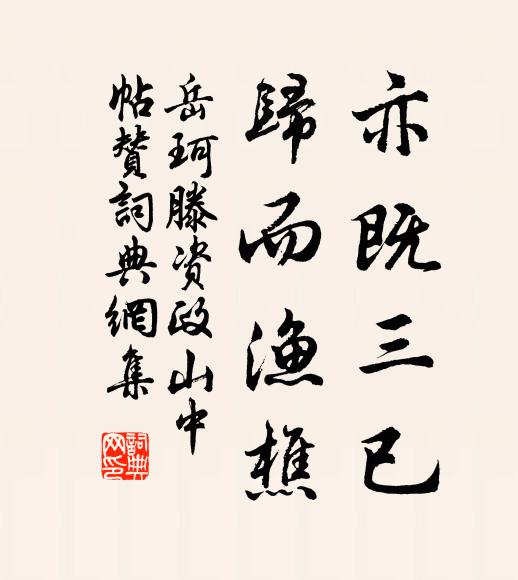 亦既三已
歸而漁樵
岳珂滕资政山中
帖贊詞典網集
詞典网印